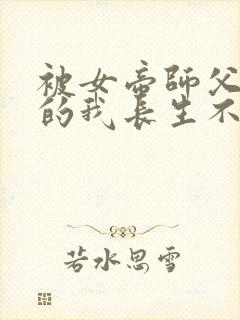 被女帝師父
的我長生不
若水思雪